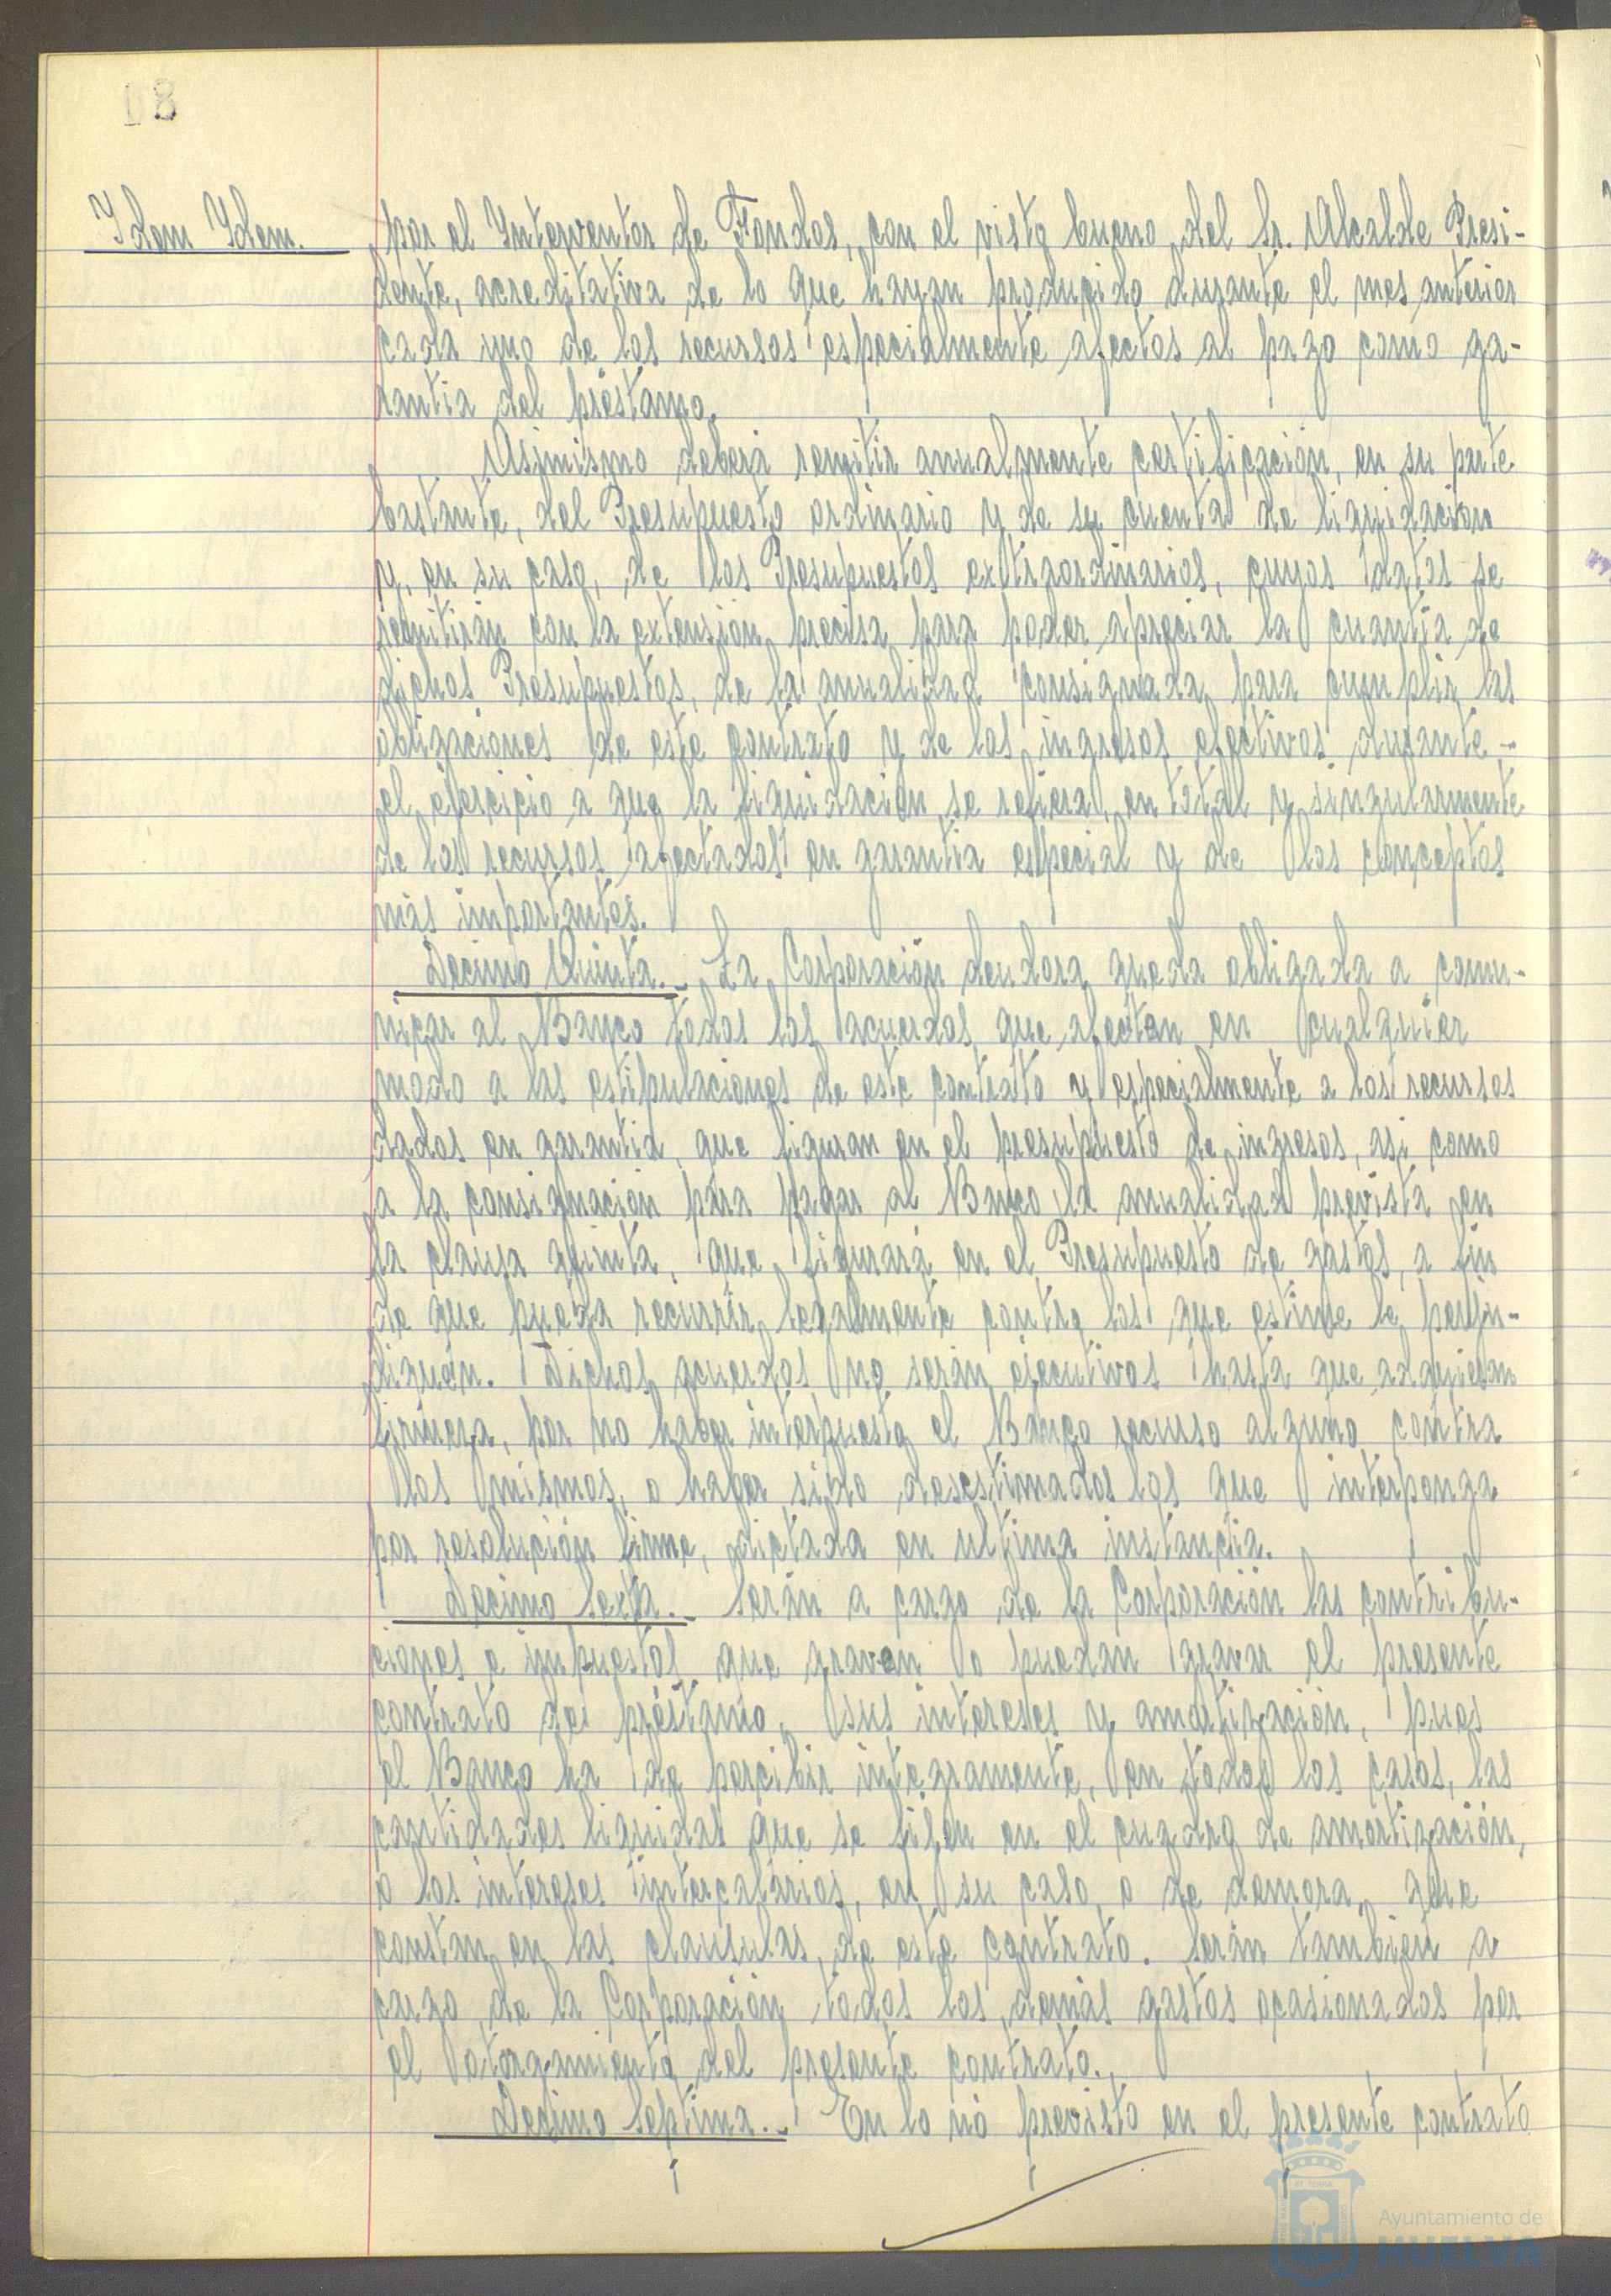 08
Idem Idem.
por el Interventor de Fondos, con el visto bueno del Sr. Alcalde Presi-
dente, acreditativa de lo que hayan producido durante el mes anterior
cada uno de los recursos especialmente afectos al pago como ga-
rantia del préstamo.
Asimismo deberá remitir anualmente certificación, en su parte
bastante, del Presupuesto ordinario y de su cuenta de liquidación
y, en su caso, de los Presupuestos extraordinarios, cuyos datos se
remitirán con la extensión precisa para poder apreciar la cuantía de
dichos Presupuestos, de la anualidad consignada para cumplir las
obligaciones de este contrato y de los ingresos efectivos durante -
el ejercicio a que la liquidación se refiera, en total y singularmente
de los recursos afectados en garantia especial y de los conceptos
más importantes.
Decimo Quinta.- La Corporación deudora queda obligada a comu-
nicar al Banco todos los acuerdos que afecten en cualquier
modo a las estipulaciones de este contrato y especialmente a los recursos
dados en garantia, que figuran en el presupuesto de ingresos, asi como
a la consignación para pagar al Banco la anualidad prevista en
la clausa quinta, que figurará en el Presupuesto de gastos, a fin
de que pueda recurrir legalmente contra los que estime le perju-
diquen. Dichos acuerdos no serán ejecutivos hasta que adquieran
firmeza, por no haber interpuesto el Banco recurso alguno contra
los mismos, o haber sido desestimados los que interponga
por resolución firme, dictada en ultima instancia.
Decimo Sexta.- Serán a cargo de la Corporación las contribu-
ciones e impuestos que graven o puedan gravar el presente
contrato de préstamo, sus intereses y amortización, pues
el Banco ha de percibir integramente, en todos los casos, las
cantidades liquidas que se fijen en el cuadro de amortización,
o los intereses intercalarios, en su caso, o de demora, que
constan en las clausulas de este contrato. Serán tambien a
cargo de la Corporación todos los demás gastos ocasionados por
el otorgamiento del presente contrato.
Decimo Septima.- En lo no previsto en el presente contrato
Ayuntamiento de
HUELVA